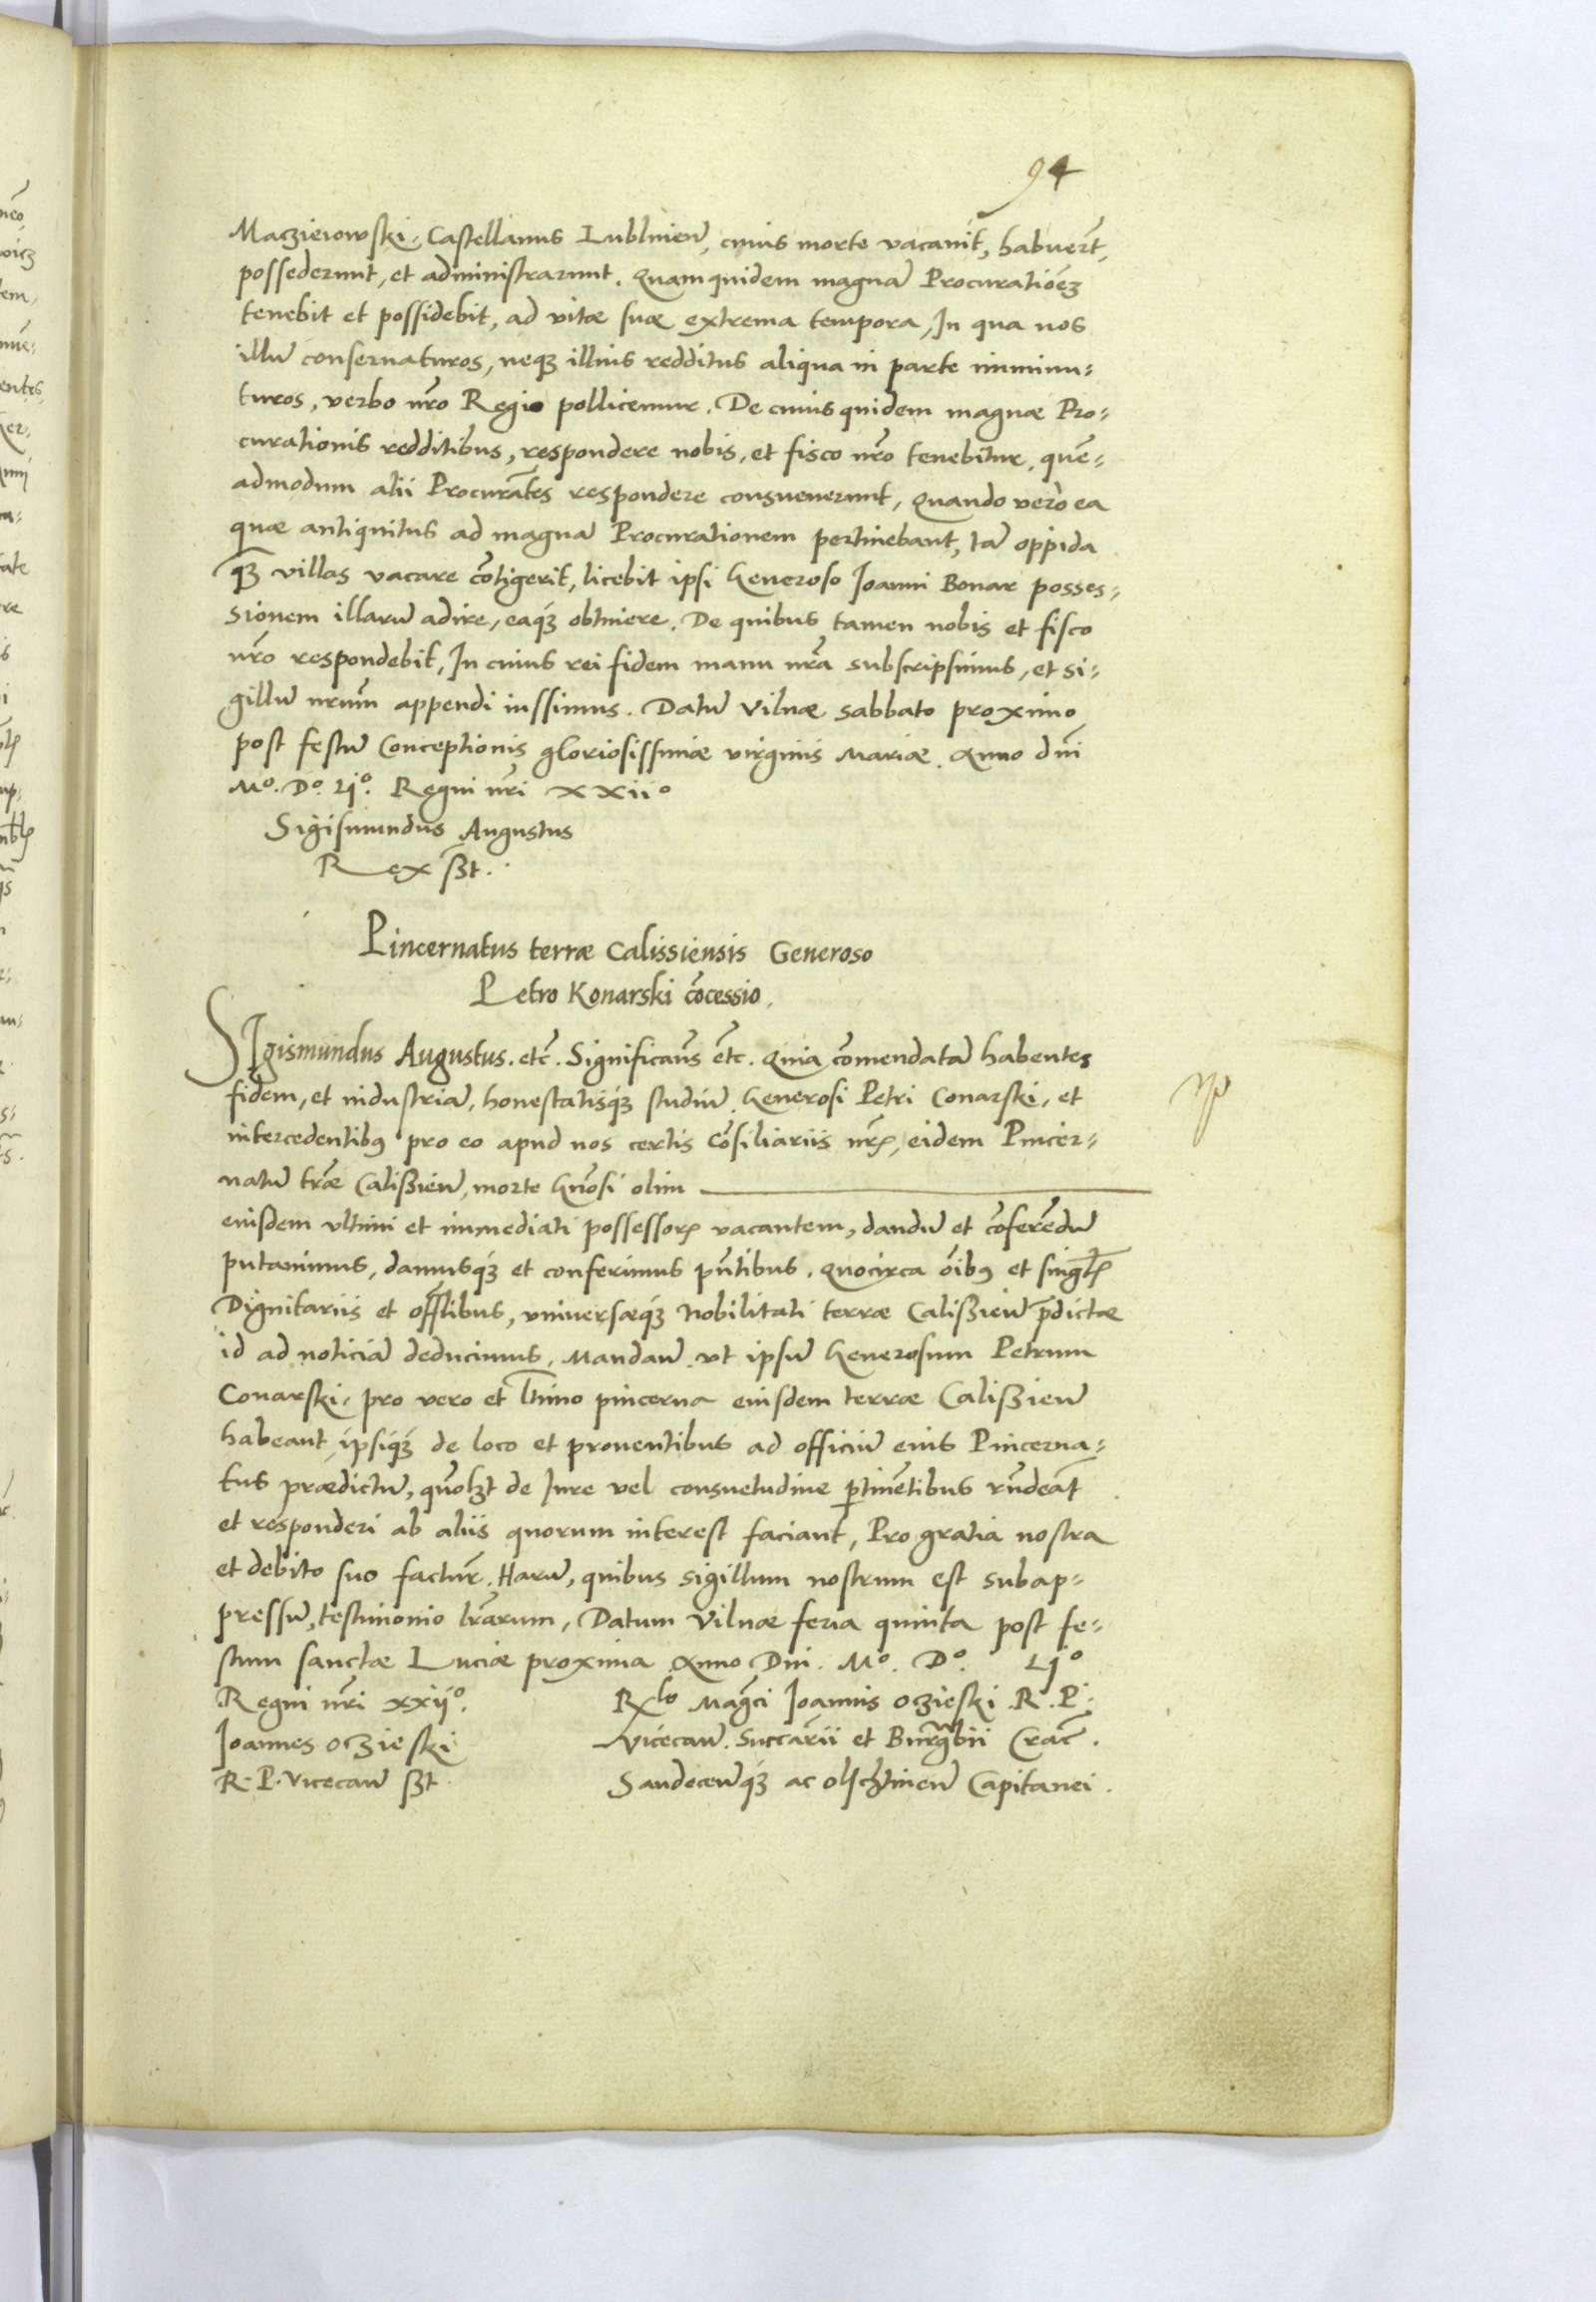 94
Maczieiowski, Castellanus Lublineñ, cuius morte vacauit, habuerũt,
possederunt, et administrarunt. Quam quidem magnã Procuratiõeʒ
tenebit et possidebit, ad vitæ suæ extrema tempora, In qua nos
illũ conseruaturos, neqʒ illius redditus aliqua in parte imminu-
turos, verbo nr̃o Regio pollicemur. De cuius quidem magnæ Pro-
curationis redditibus, respondere nobis, et fisco nr̃o tenebitur, quẽ-
admodum alii Procurãtes respondere consueuerunt, Quando vero ea
quæ antiquitus ad magnã Procurationem pertinebant, tã oppida
qʒ̃ villas vacare cõtigerit, licebit ipsi Generoso Ioanni Bonar posses-
sionem illarũ adire, eaqʒ obtinere. De quibus tamen nobis et fisco
nr̃o respondebit, In cuius rei fidem manu nr̃a subscripsimus, et si-
gillũ nrũm appendi iussimus. Datũ Vilnæ sabbato proximo
post festũ Conceptionis gloriosissimæ virginis Mariæ. Anno dñi
Mº. Dº. Ljº. Regni nr̃i xxiiº
Sigismundus Augustus
Rex sst.
Pincernatus terræ Calissiensis Generoso
Petro Konarski cõcessio.
SIgismundus Augustus. etc̃. Significañs etc̃. Quia cõmendatã habentes
fidem, et industriã, honestatisqʒ studiũ Generosi Petri Conarski, et
intercedentibꝰ pro eo apud nos certis cõsiliariis nr̃is, eidem Pincer-
natũ tr̃æ Calissieñ, morte Gñosi olim
eiusdem vltimi et immediati possessoris vacantem, dandũ et cõferẽdũ
putauimus, damusqʒ et conferimus pñtibus. Quocirca õibꝰ et singl̃is
Dignitariis et offl̃ibus, vniuersæqʒ Nobilitati terræ Calissieñ p̃dictæ
id ad noticiã deducimus, Mandañ vt ipsũ Generosum Petrum
Conarski, pro vero et l̃timo pincerna eiusdem terræ Calissieñ
habeant, ipsiqʒ de loco et prouentibus ad officiũ eius Pincerna-
tus prædictũ, quõlʒt de Iure vel consuetudine ptinẽtibus rñdeãt
et responderi ab aliis quorum interest faciant, Pro gratia nostra
et debito suo facturi. Harũ, quibus sigillum nostrum est subap-
pressũ, testimonio lr̃arum, Datum Vilnæ feria quinta post fe-
stum sanctæ Luciæ proxima Anno Dni. Mº. Dº. Ljº
Regni nr̃i xxijº.
Ioannes Oczieski
R. P. Vicecañ sst.
Rlo Magc̃i Ioannis Oczieski R. P.
Vicecañ. Succãrii et Burgr̃bii Crac̃.
Sandeceñqʒ ac Olschtineñ Capitanei.